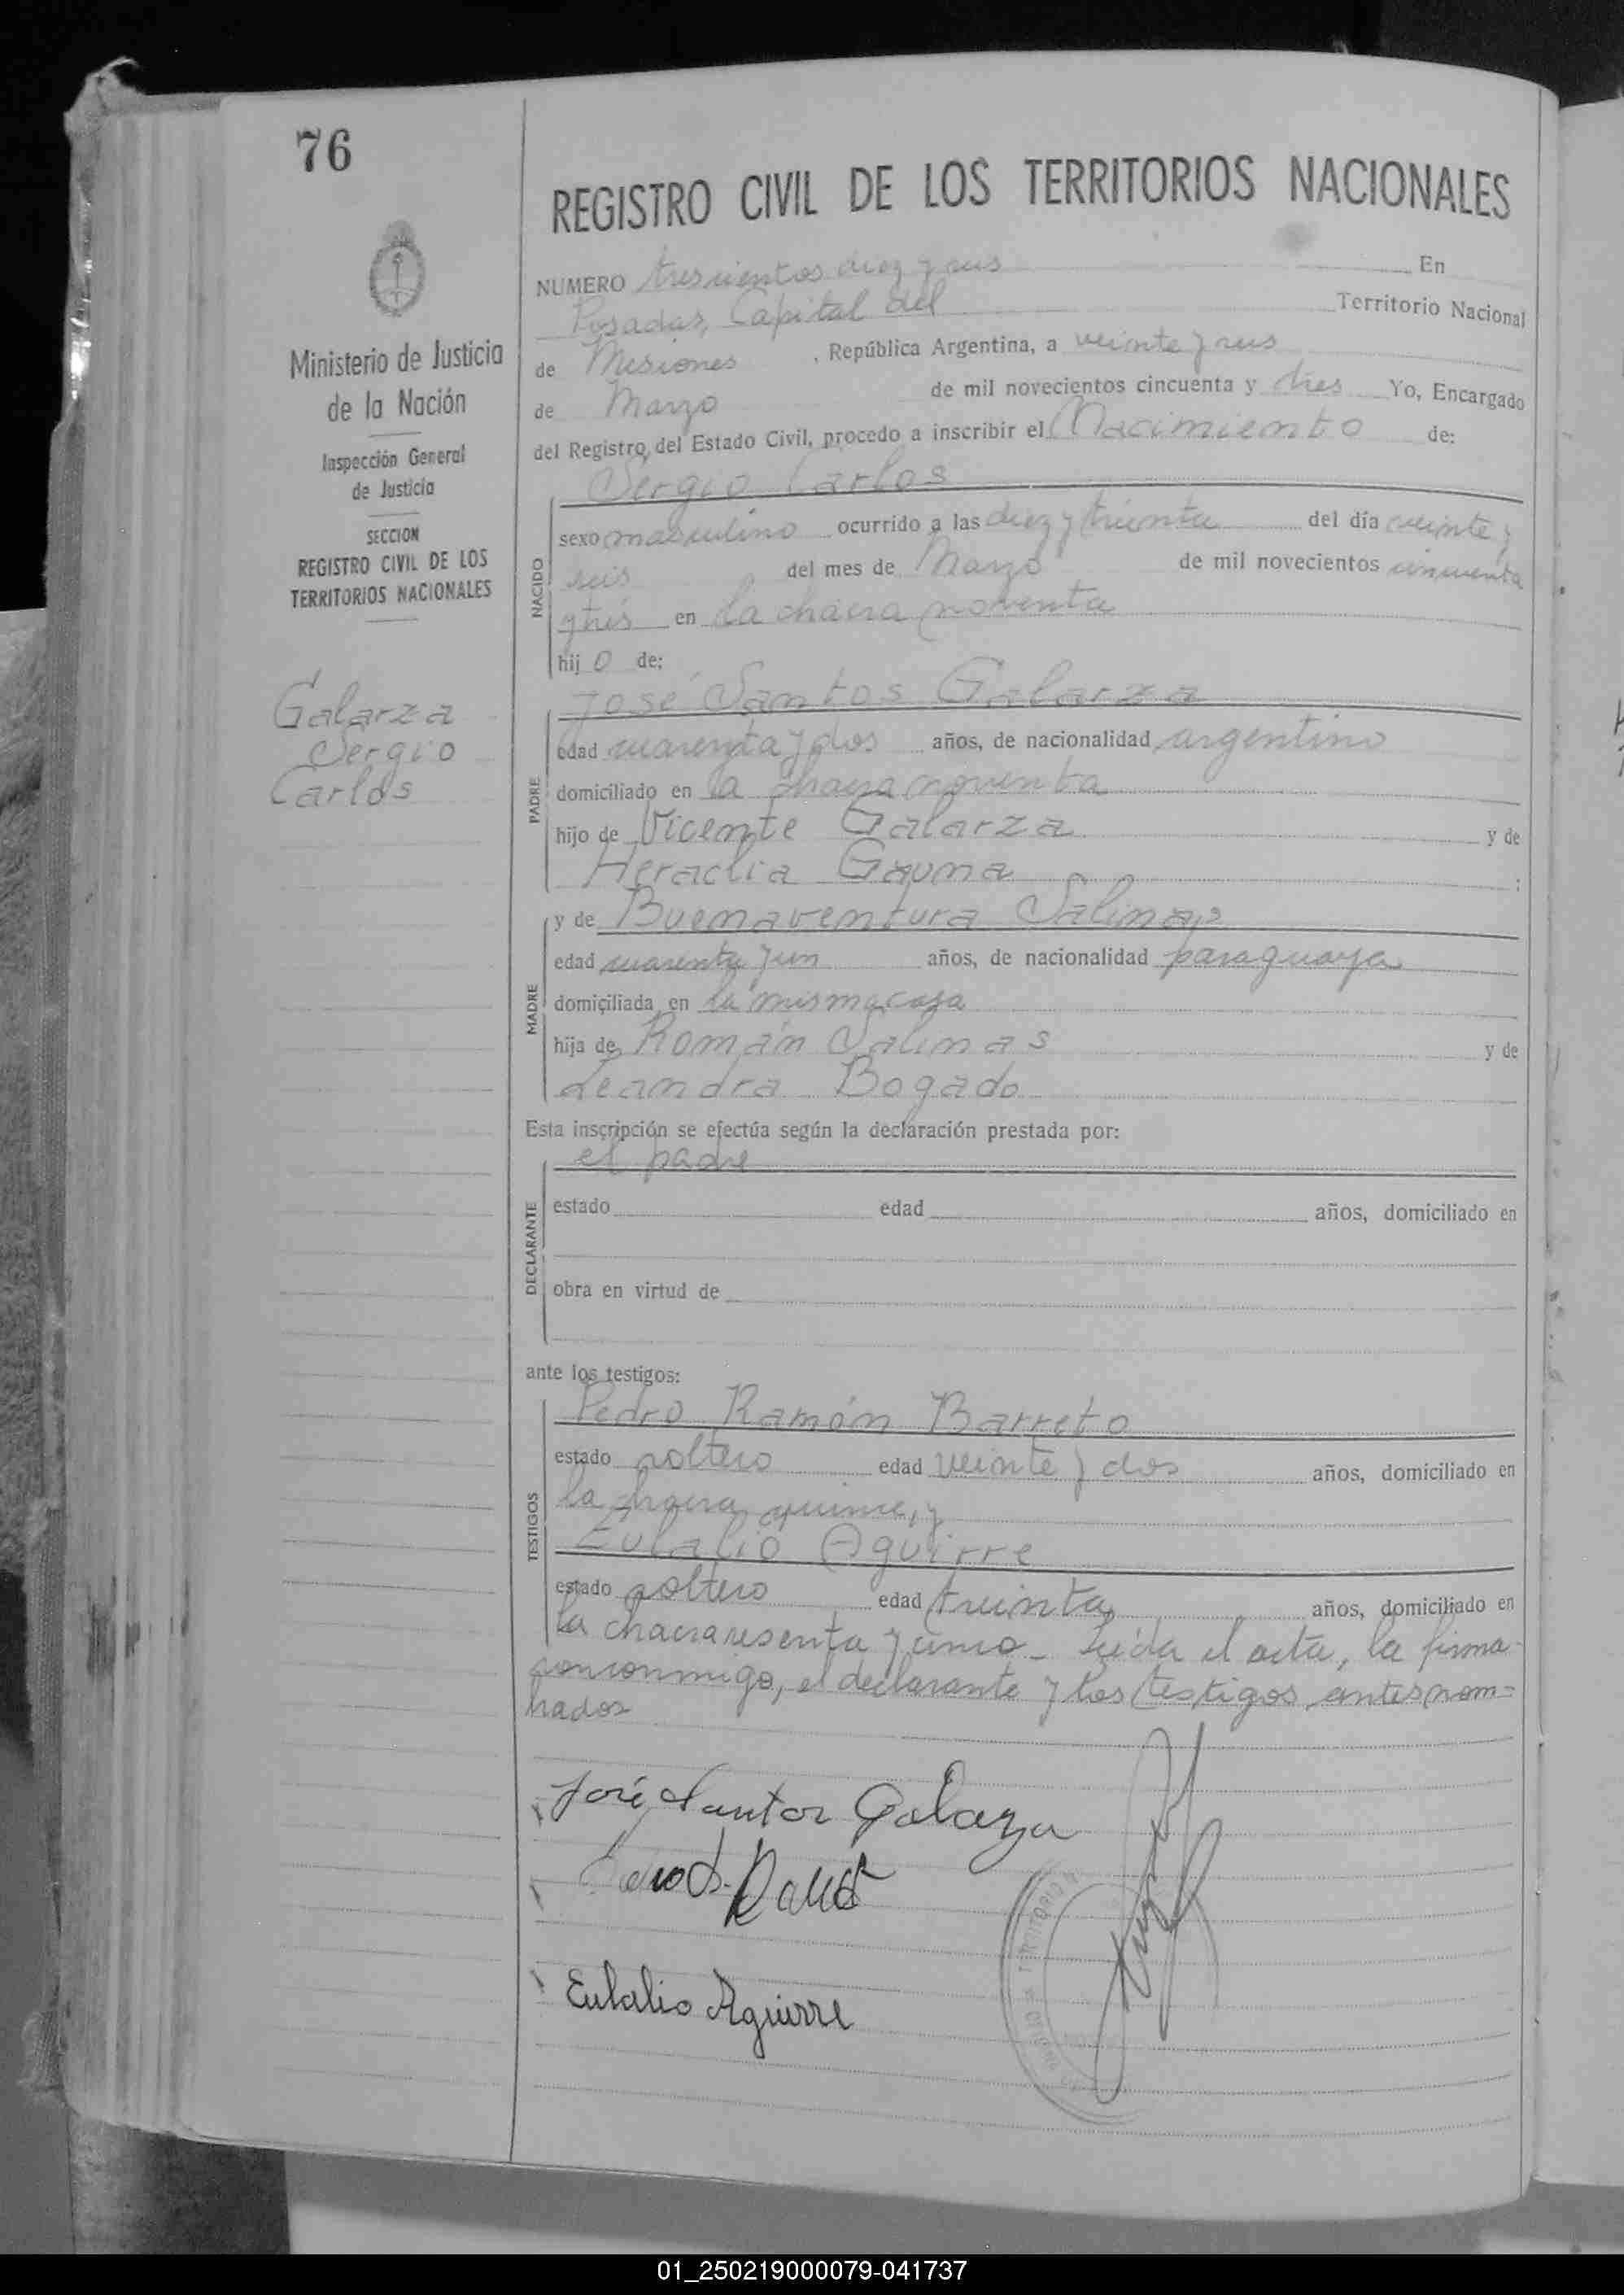 76
REGISTRO CIVIL DE LOS TERRITORIOS NACIONALES
Ministerio de Justicia
de la Nación
Inspección General
de Justicia
SECCION
REGISTRO CIVIL DE LOS
TERRITORIOS NACIONALES
Galarza
Sergio
Carlos
NUMERO trescientos diez y seis En
Posadas, Capital del Territorio Nacional
de Misiones , República Argentina, a veinte y seis
de Marzo de mil novecientos cincuenta y tres Yo, Encargado
del Registro del Estado Civil, procedo a inscribir el Nacimiento de:
NACIDO
Sergio Carlos
sexo masculino ocurrido a las diez y treinta del día veinte y
seis del mes de Marzo de mil novecientos cincuenta
y tres en la chacra noventa
hijo de:
PADRE
José Santos Galarza
edad cuarenta y dos años, de nacionalidad argentino
domiciliado en la chacra noventa
hijo de Vicente Galarza y de
Heraclia Gauna :
MADRE
y de Buenaventura Salinas
edad cuarenta y un años, de nacionalidad paraguaya
domiciliada en la misma casa
hija de Román Salinas y de
Leandra Bogado
Esta inscripción se efectúa según la declaración prestada por:
DECLARANTE
el padre
estado edad años, domiciliado en
obra en virtud de
ante los testigos:
TESTIGOS
Pedro Ramón Barreto
estado soltero edad veinte y dos años, domiciliado en
la chacra quince, y
Eulalio Aguirre
estado soltero edad treinta años, domiciliado en
la chacra sesenta y cinco - Leída el acta, la firma
con conmigo, el declarante y los testigos antes nom=
brados
José Santos Galarza
Eulalio Aguirre
TERRITORIO
01_250219000079-041737